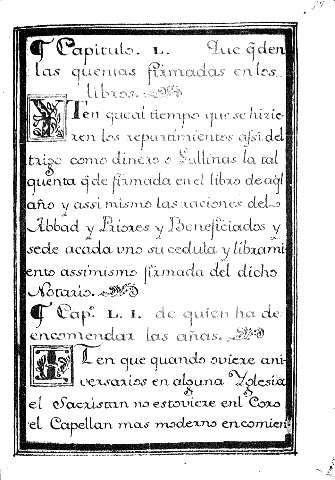 ¶ Capitulo. L. Que q̃den
las quentas firmadas en los
libros.
YTen que al tiempo que se hizie
ren los repartimientos assi del
trigo como dinero o Gallinas la tal
quenta q̃de firmada en el libro de aq̃l
año y assi mismo las raciones del
Abbad y Priores y Beneficiados y
se de a cada uno su cedula y librami
ento assimismo firmada del dicho
Notario.
¶ Capº. L. I. de quien ha de
encomendar las añas.
ITen que quando oviere ani
versarios en alguna Yglesia
el Sacristan no estoviere enl Coro
el Capellan mas moderno encomien